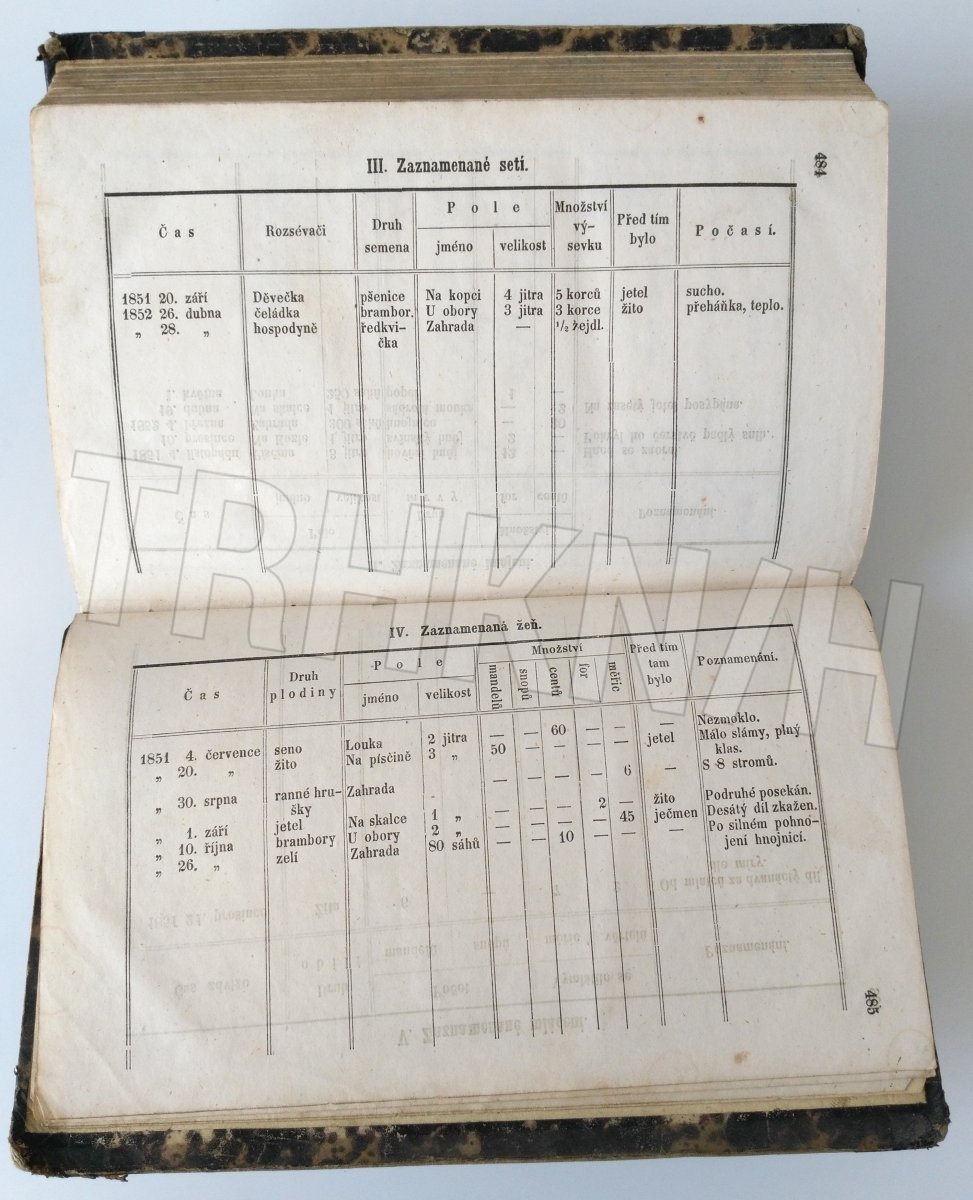 484
III. Zaznamenané setí.
Čas Rozsévači Druh semena Pole jméno velikost Množství vý- sevku Před tím bylo Počasí.
1851 20. září Děvečka pšenice Na kopci 4 jitra 5 korců jetel sucho.
1852 26. dubna čeládka brambor. U obory 3 jitra 3 korce žito přeháňka, teplo.
„ 28. „ hospodyně ředkvi- Zahrada — 1/2 žejdl.
čka
TRHKNIH
IV. Zaznamenaná žeň.
Čas Druh plodiny Pole jméno velikost Množství mandelů snopů centů for měřic Před tím tam bylo Poznamenání.
1851 4. července seno Louka 2 jitra — — 60 — — — Nezmoklo.
„ 20. „ žito Na písčině 3 „ 50 — — — — jetel Málo slámy, plný
klas.
„ 30. srpna ranné hru- Zahrada — — — — 6 — S 8 stromů.
šky
„ 1. září jetel Na skalce 1 „ — — — 2 — žito Podruhé posekán.
„ 10. října brambory U obory 2 „ — — — — 45 ječmen Desátý díl zkažen.
„ 26. „ zelí Zahrada 80 sáhů — — 10 — — — Po silném pohno-
jení hnojnicí.
485